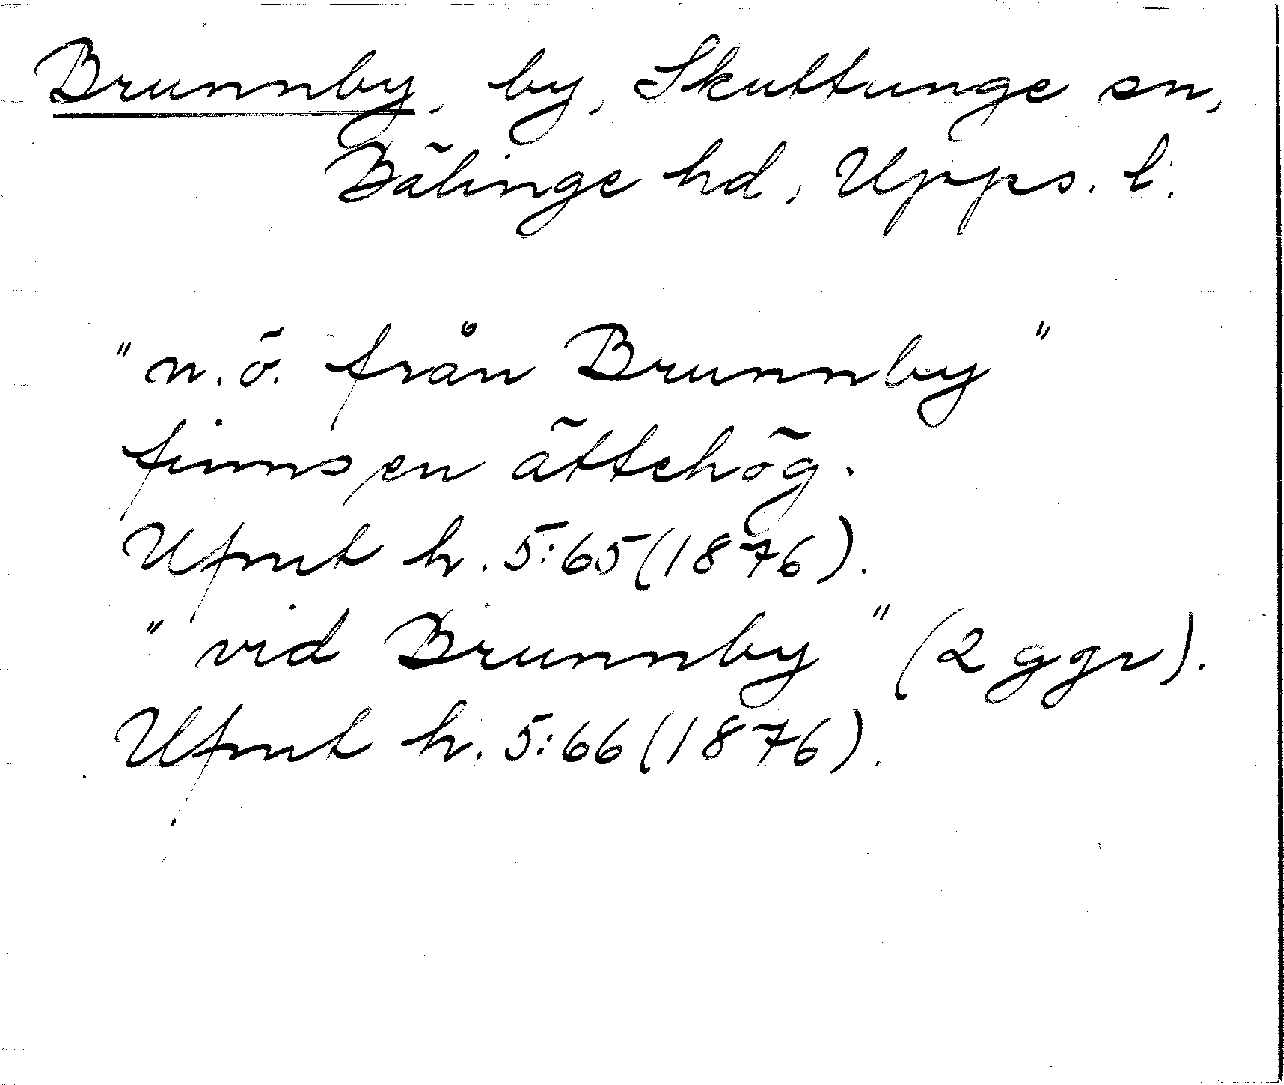 Brunnby, by, Skuttunge sn,
Bälinge hd, Upps. l.
"n.ö. från Brunnby"
finns en ättehög.
Ufmt h. 5:65 (1876).
"vid Brunnby" (2 ggr).
Ufmt h. 5:66 (1876).